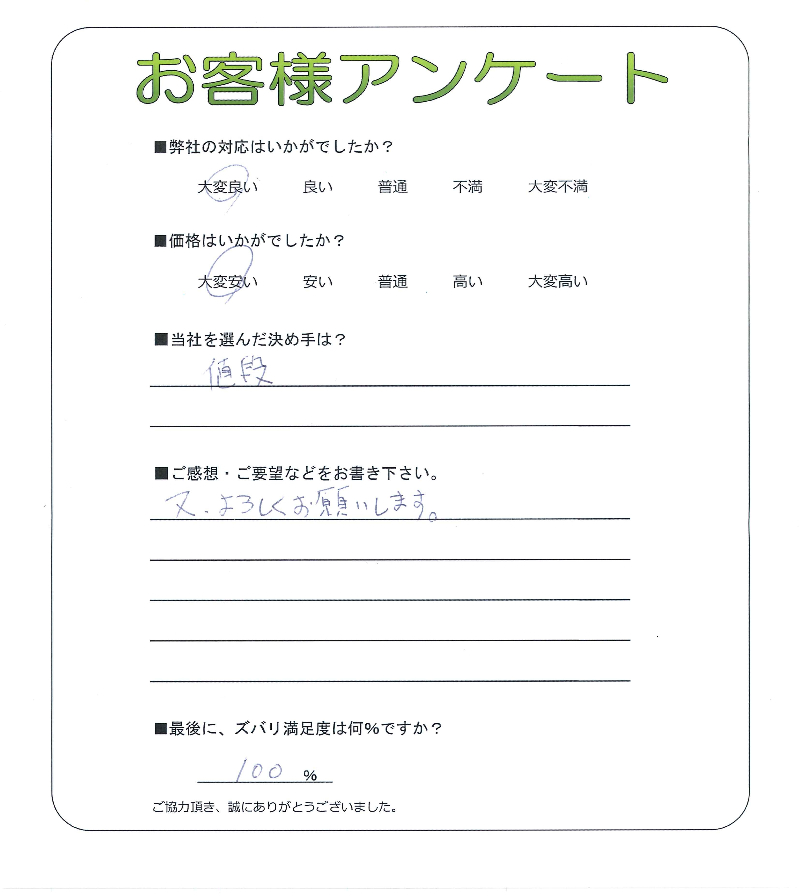 お客様アンケート
■弊社の対応はいかがでしたか？
大変良い 良い 普通 不満 大変不満
■価格はいかがでしたか？
大変安い 安い 普通 高い 大変高い
■当社を選んだ決め手は？
値段
■ご感想・ご要望などをお書き下さい。
又、よろしくお願いします。
■最後に、ズバリ満足度は何%ですか？
100 %
ご協力頂き、誠にありがとうございました。